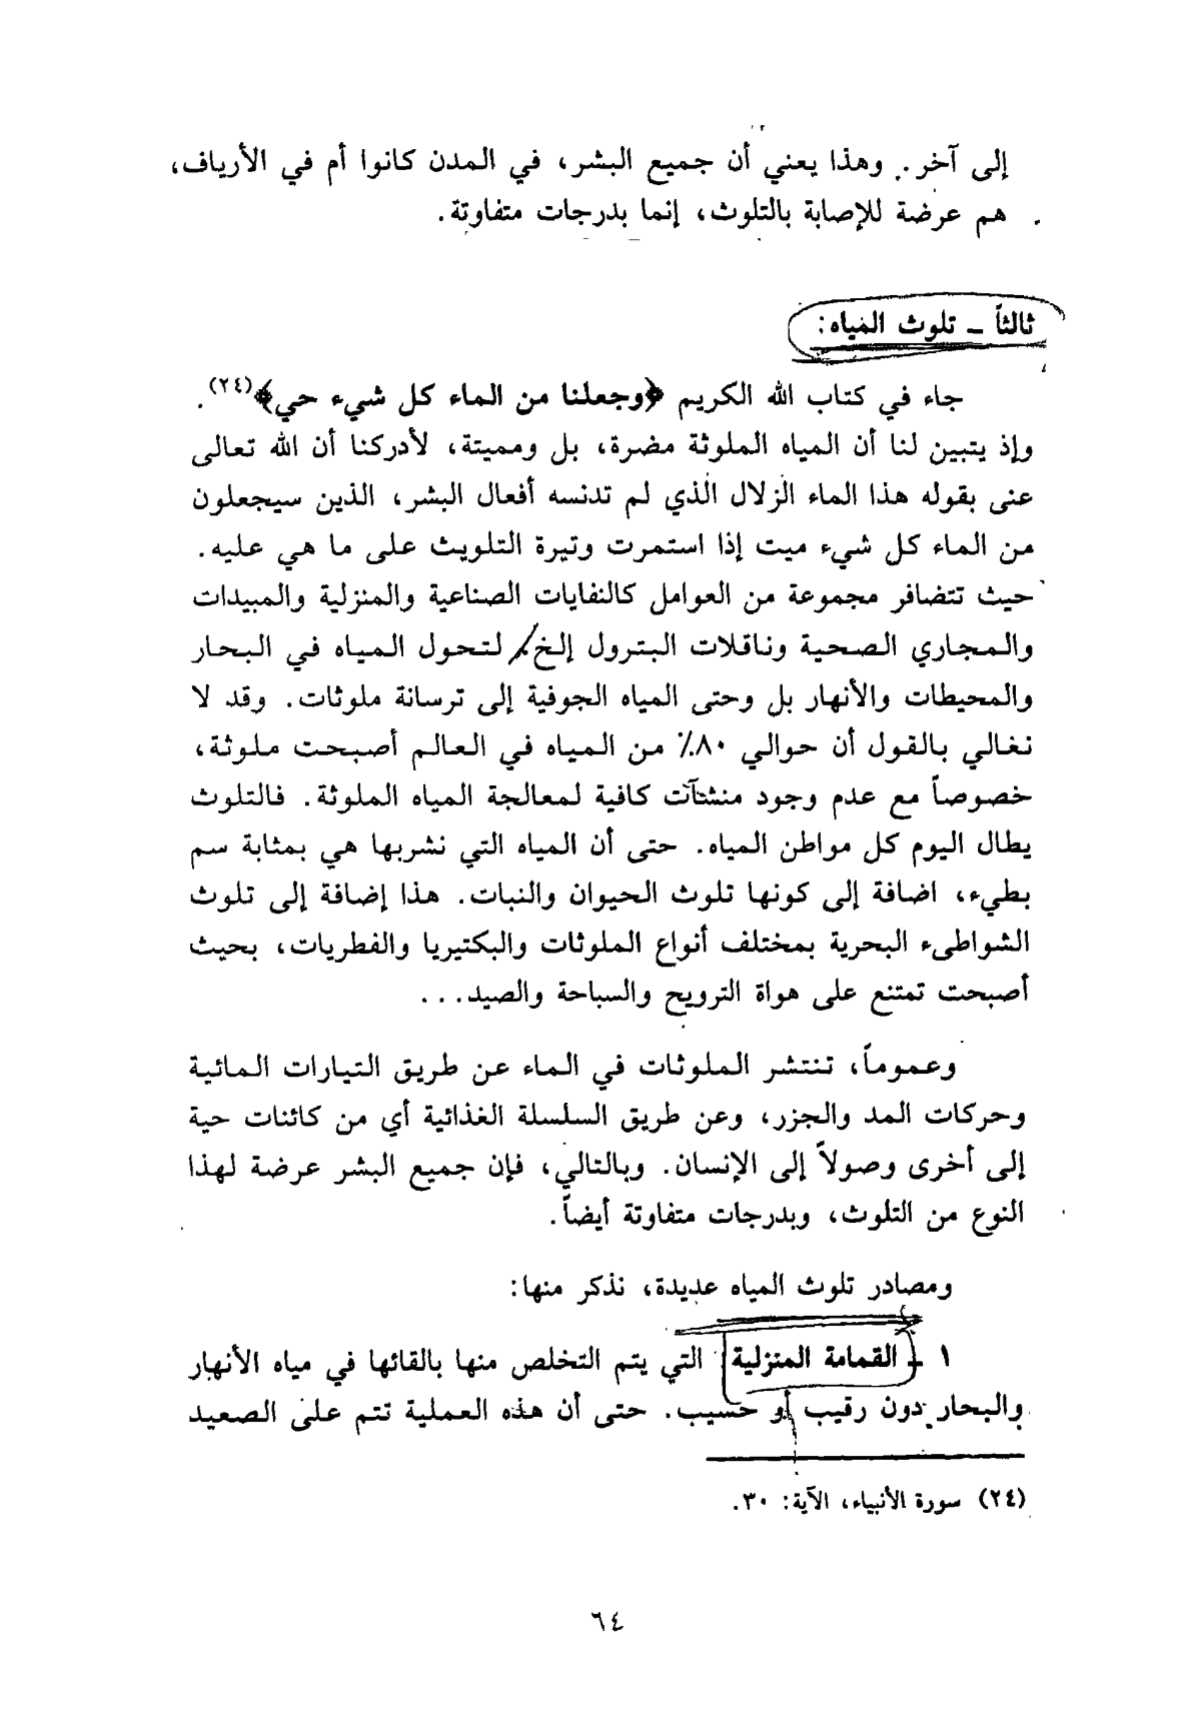 إلى آخر. وهذا يعني أن جميع البشر، في المدن كانوا أم في الأرياف،
هم عرضة للإصابة بالتلوث، إنما بدرجات متفاوتة.
ثالثاً ـ تلوث المياه:
جاء في كتاب الله الكريم ﴿وجعلنا من الماء كل شيء حي﴾(٢٤).
وإذ يتبين لنا أن المياه الملوثة مضرة، بل ومميتة، لأدركنا أن الله تعالى
عنى بقوله هذا الماء الزلال الذي لم تدنسه أفعال البشر، الذين سيجعلون
من الماء كل شيء ميت إذا استمرت وتيرة التلويث على ما هي عليه.
حيث تتضافر مجموعة من العوامل كالنفايات الصناعية والمنزلية والمبيدات
والمجاري الصحية وناقلات البترول إلخ. لتحول المياه في البحار
والمحيطات والأنهار بل وحتى المياه الجوفية إلى ترسانة ملوثات. وقد لا
نغالي بالقول أن حوالي ٨٠٪ من المياه في العالم أصبحت ملوثة،
خصوصاً مع عدم وجود منشآت كافية لمعالجة المياه الملوثة. فالتلوث
يطال اليوم كل مواطن المياه. حتى أن المياه التي نشربها هي بمثابة سم
بطيء، اضافة إلى كونها تلوث الحيوان والنبات. هذا إضافة إلى تلوث
الشواطىء البحرية بمختلف أنواع الملوثات والبكتيريا والفطريات، بحيث
أصبحت تمتنع على هواة الترويح والسباحة والصيد...
وعموماً، تنتشر الملوثات في الماء عن طريق التيارات المائية
وحركات المد والجزر، وعن طريق السلسلة الغذائية أي من كائنات حية
إلى أخرى وصولاً إلى الإنسان. وبالتالي، فإن جميع البشر عرضة لهذا
النوع من التلوث، وبدرجات متفاوتة أيضاً.
ومصادر تلوث المياه عديدة، نذكر منها:
١ ـ القمامة المنزلية التي يتم التخلص منها بالقائها في مياه الأنهار
والبحار دون رقيب أو حسيب. حتى أن هذه العملية تتم على الصعيد
(٢٤) سورة الأنبياء، الآية: ٣٠.
٦٤